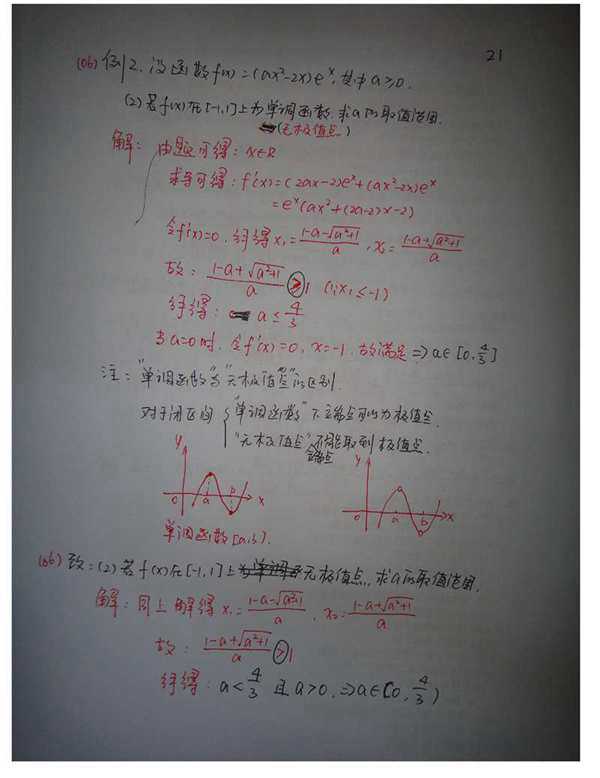 21
(06) 例2. 设函数f(x)=(ax²-2x)eˣ, 其中a≥0.
(2) 若f(x)在[-1,1]上为单调函数, 求a的取值范围.
(无极值点)
解: 由题可得: x∈R
求导可得: f'(x)=(2ax-2)eˣ+(ax²-2x)eˣ
=eˣ(ax²+(2a-2)x-2)
令f'(x)=0, 解得x₁=(1-a-√(a²+1))/a, x₂=(1-a+√(a²+1))/a
故: (1-a+√(a²+1))/a ≥1 (∵x₁≤-1)
解得: a≤4/3
当a=0时, 令f'(x)=0, x=-1, 故满足 ⇒a∈[0,4/3]
注: "单调函数"与"无极值点"的区别.
对于闭区间 { "单调函数"下端点可以为极值点.
"无极值点"不能取到极值点.
端点
y y
0 a b x 0 a b x
单调函数[a,b].
(06) 改: (2) 若f(x)在[-1,1]上无极值点, 求a的取值范围.
解: 同上解得x₁=(1-a-√(a²+1))/a, x₂=(1-a+√(a²+1))/a
故: (1-a+√(a²+1))/a >1
解得: a<4/3 且a>0, ⇒a∈[0,4/3)